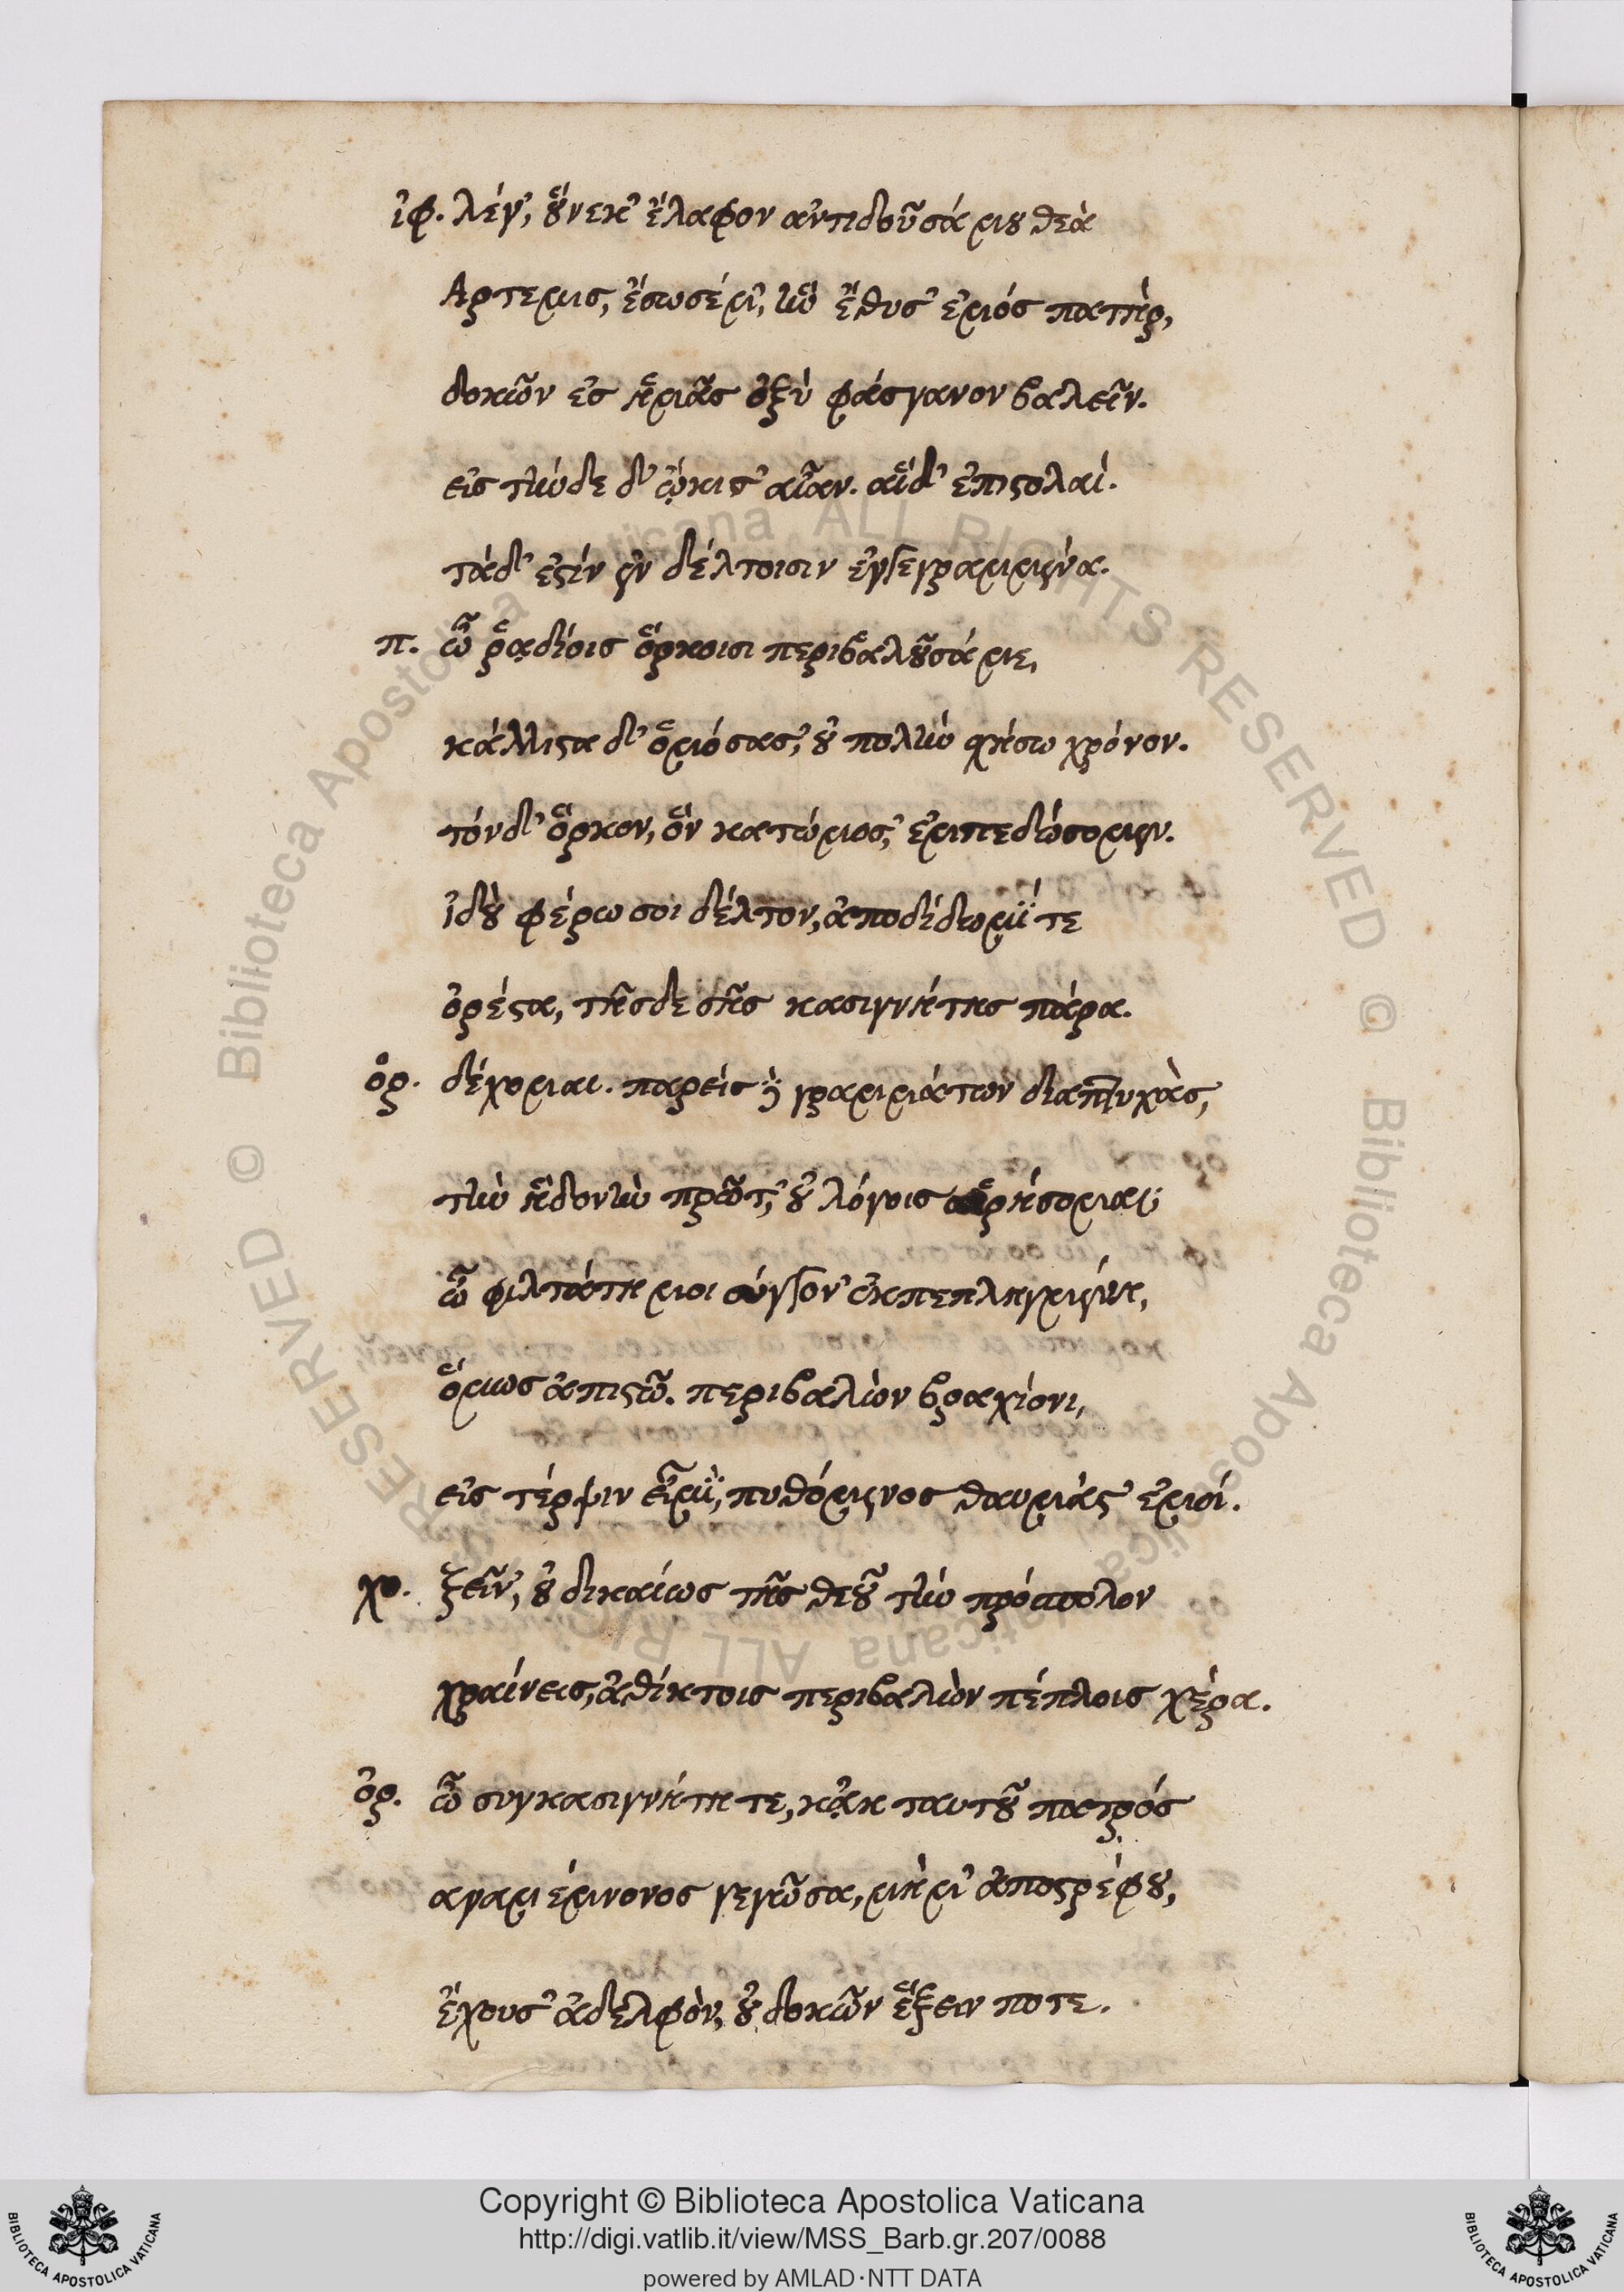 ἰφ. λέγ', οὕνεκ' ἔλαφον ἀντιδοῦσά μου θεὰ
Αρτεμις, ἔσωσέ μ', ἣν ἔθυσ' ἐμός πατὴρ,
δοκῶν ἐς ἡμᾶς ὀξὺ φάσγανον βαλεῖν.
εἰς τήνδε δ' ᾤκισ' αἶαν. αἵδ' ἐπιστολαί.
τάδ' ἐστίν ἐν δέλτοισιν ἐγγεγραμμένα.
π. ὦ ῥᾳδίοις ὅρκοισι περιβαλοῦσά με,
κάλλιστα δ' ὀμόσασ', οὐ πολὺν σχήσω χρόνον.
τόνδ' ὅρκον, ὃν κατώμοσ', ἐμπεδώσομεν.
ἰδοὺ φέρω σοι δέλτον, ἀποδίδωμί τε
ὀρέστα, τῆσδε σῆς κασιγνήτης πάρα.
ὀρ. δέχομαι. παρεὶς δὲ γραμμάτων διαπτυχὰς,
τὴν ἡδονὴν πρῶτ', οὐ λόγοις αἱρήσομαι.
ὦ φιλτάτη μοι σύγγον' ἐκπεπληγμένη,
ὅμως ἀπιστῶ. περιβαλὼν βραχίονι,
εἰς τέρψιν εἶμι, πυθόμενος θαυμάστ' ἐμοί.
χο. ξεῖν', οὐ δικαίως τῆς θεοῦ τὴν πρόσπολον
χραίνεις, ἀθίκτοις περιβαλὼν πέπλοις χέρα.
ὀρ. ὦ συγκασιγνήτη τε, κἀκ ταυτοῦ πατρός
αγαμέμνονος γεγῶσα, μή μ' ἀποστρέφου,
ἔχουσ' ἀδελφὸν, οὐ δοκῶν ἕξειν ποτε.
Biblioteca Apostolica Vaticana ALL RIGHTS RESERVED ©
Copyright © Biblioteca Apostolica Vaticana
http://digi.vatlib.it/view/MSS_Barb.gr.207/0088
powered by AMLAD·NTT DATA
BIBLIOTECA APOSTOLICA VATICANA
BIBLIOTECA APOSTOLICA VATICANA